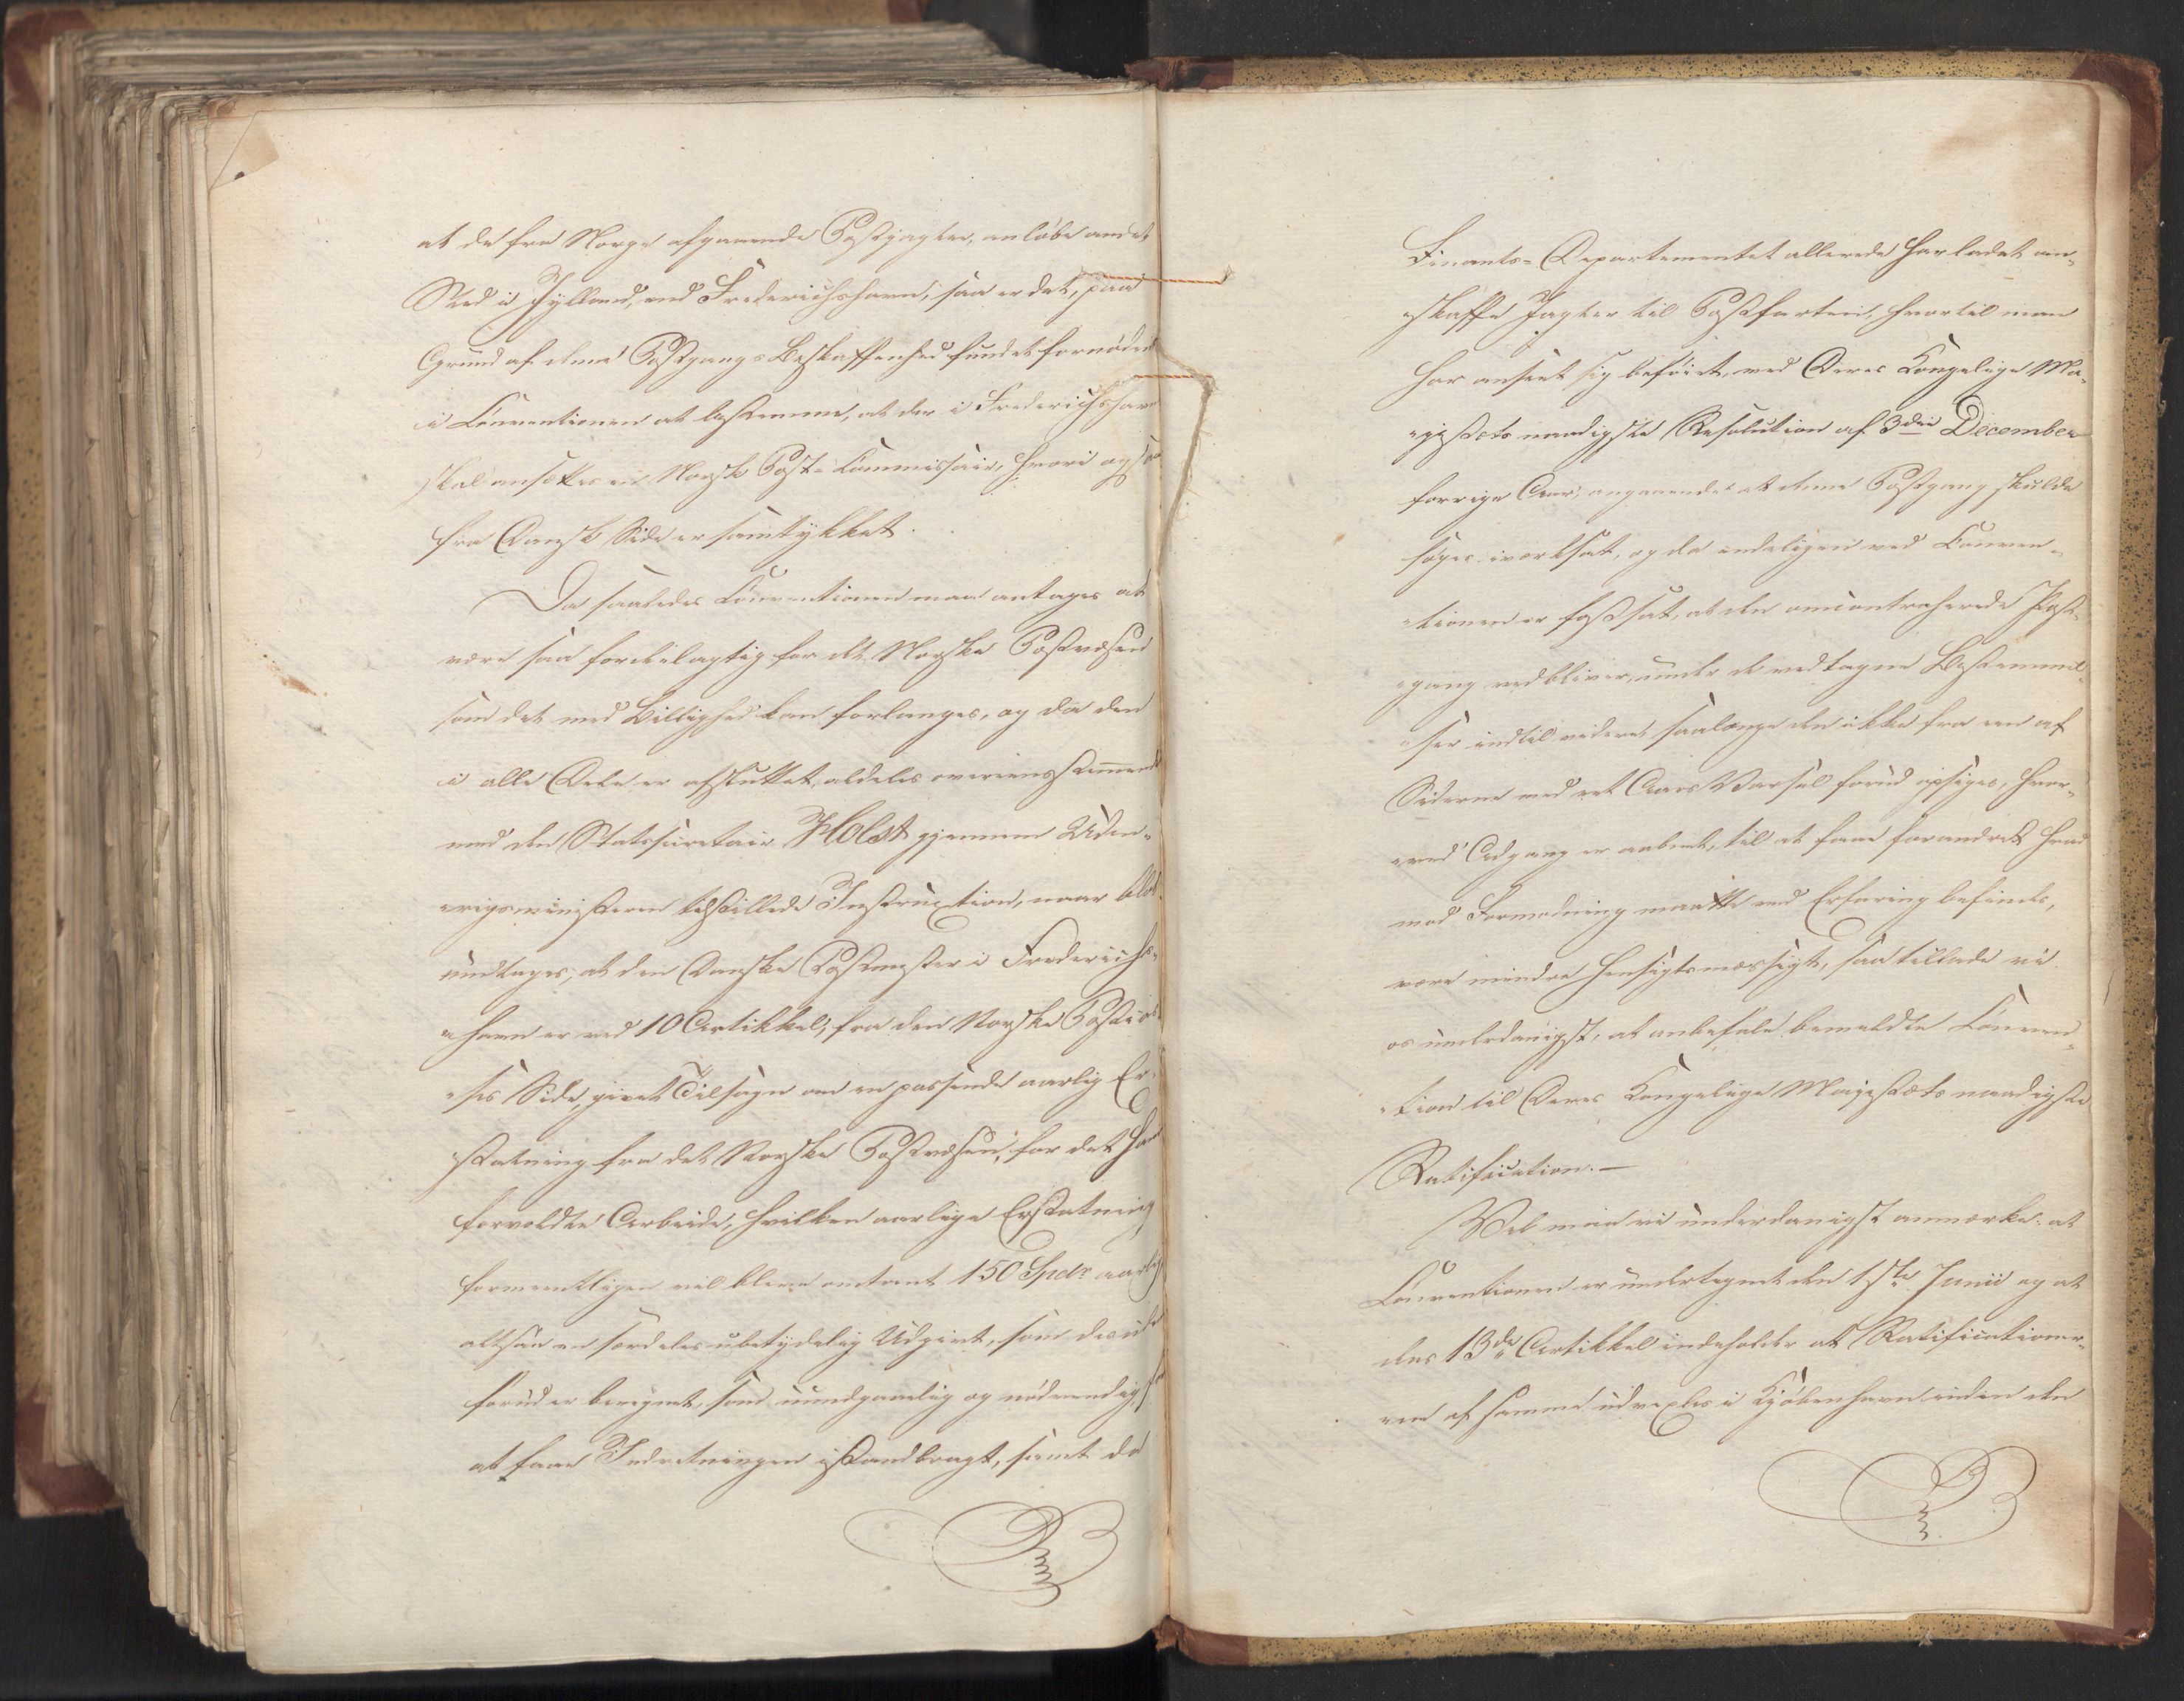 at de fra Norge afgaaende Postjagter, anløbe andet
Sted i Jylland, end Frederichshavn, saa er det, paa
Grund af denne Postgangs Beskaffenhed fundet fornøden
i Conventionen at bestemme, at der i Frederichshavn
skal ansættes en Norsk Post-Commissair, hvori ogsaa
fra Dansk Side er samtykket.
Da saaledes Conventionen maa antages at
være saa fordeelagtig for det Norske Postvæsen
som det med Billighed kan forlanges, og da den
i alle Dele er afsluttet, aldeles overeensstemmende
med den Statssecretair Holst gjennem Uden-
rigsministeren tilstillede Instruction, naar blot
undtages, at den Danske Postmester i Frederichs-
havn er ved 10 Artikkel, fra den Norske
Side, givet Tilsagn om en passende aarlig Er-
statning fra det Norske Postvæsen, for det ham
forvoldte Arbeide, hvilken aarlige Erstatning
formeentligen vil blive omtrent 150 Spdr aarlig
altsaa en særdeles ubetydelig Udgivt, som desuden
forud er beregnet, som uundgaaelig og nødvendig, for
at faae Indretningen istandbragt, samt da
Finants-Departementet allerede har ladet an-
skaffe Jagter til Postfarten, hvortil man
har anseet sig beføiet, ved Deres Kongelige Ma-
jestæts naadigste Resolution af 3die December
forrige Aar, angaaende at denne Postgang skulde
søges iværksat, og da endeligen ved Conven-
tionen er fastsat, at den omcontraherede Post-
gang vedbliver, under de vedtagne Bestemmel-
ser indtil videre, saalænge den ikke fra een af
Siderne med eet Aars Varsel forud opsiges, hvor-
ved Adgang er aabnet, til at faae forandret hvad
mod Formodning maatte ved Erfaring befindes,
være mindre hensigtsmæssigt, saa tillade vi
os underdanigst, at anbefale bemeldte Conven-
tion til Deres Kongelige Majestæts naadigste
Ratification.—
Vel maa vi underdanigst anmærke, at
Conventionen er undertegnet den 1ste Junii og at
dens 13de Artikkel indeholder at Ratificationer-
ne af samme udvexles i Kjøbenhavn inden den